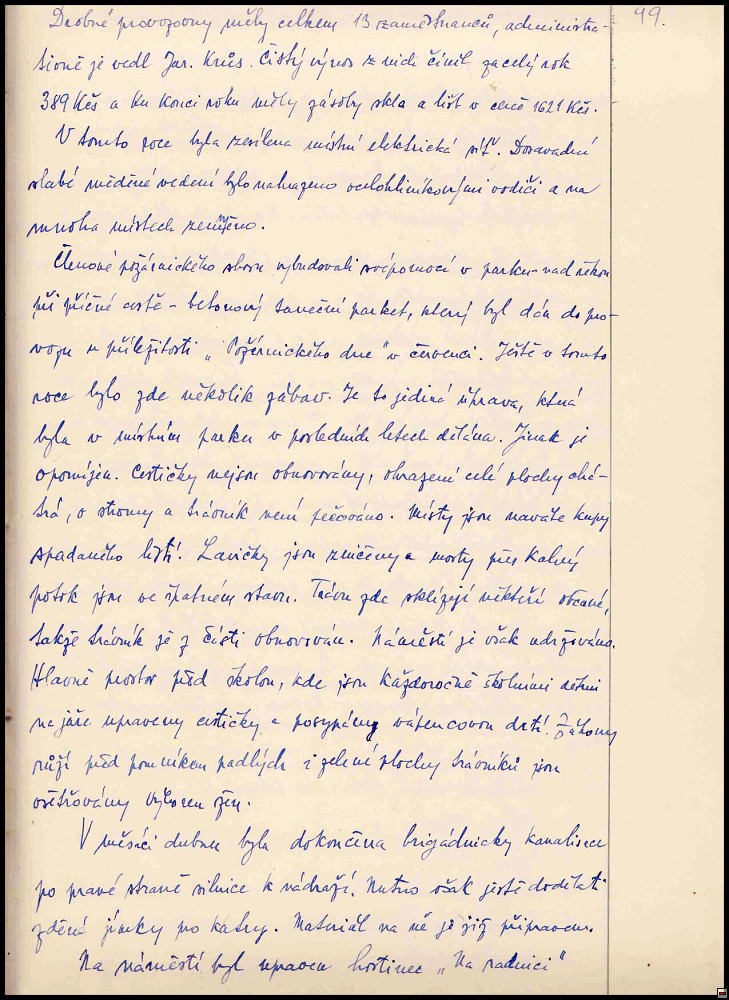 49.
Drobné provozovny měly celkem 13 zaměstnanců, administra-
tivně je vedl Jar. Krůs. Čistý výnos z nich činil za celý rok
389 Kčs a ku konci roku měly zásoby skla a lišt v ceně 1621 Kčs.
V tomto roce byla zesílena místní elektrická síť. Dosavadní
slabé měděné vedení bylo nahrazeno ocelohliníkovými vodiči a na
mnoha místech zeměno.
Členové požárnického sboru vybudovali svépomocí v parku - nad řekou
při příčné cestě - betonový taneční parket, který byl dán do pro-
vozu u příležitosti „Požárnického dne" v červenci. Ještě v tomto
roce bylo zde několik zábav. Je to jediná úprava, která
byla v místním parku v posledních letech dělána. Jinak je
opomíjen. Cestičky nejsou obnovovány, ohrazení celé plochy chá-
trá, o stromy a trávník není pečováno. Místy jsou naváté kupy
spadaného listí. Lavičky jsou zničeny a mosty přes Kalný
potok jsou ve špatném stavu. Trávu zde sklízejí někteří občané,
takže trávník je z části obnovován. Náměstí je však udržováno.
Hlavně prostor před školou, kde jsou každoročně školními dětmi
na jaře upraveny cestičky a posypány vápencovou drtí. Záhony
růží před pomníkem padlých i zelené plochy trávníků jsou
ošetřovány výborem žen.
V měsíci dubnu byla dokončena brigádnicky kanalisace
po pravé straně silnice k nádraží. Nutno však ještě dodělati
zděné jímky po kaliny. Materiál na ně je již připraven.
Na náměstí byl upraven hostinec „Na radnici"